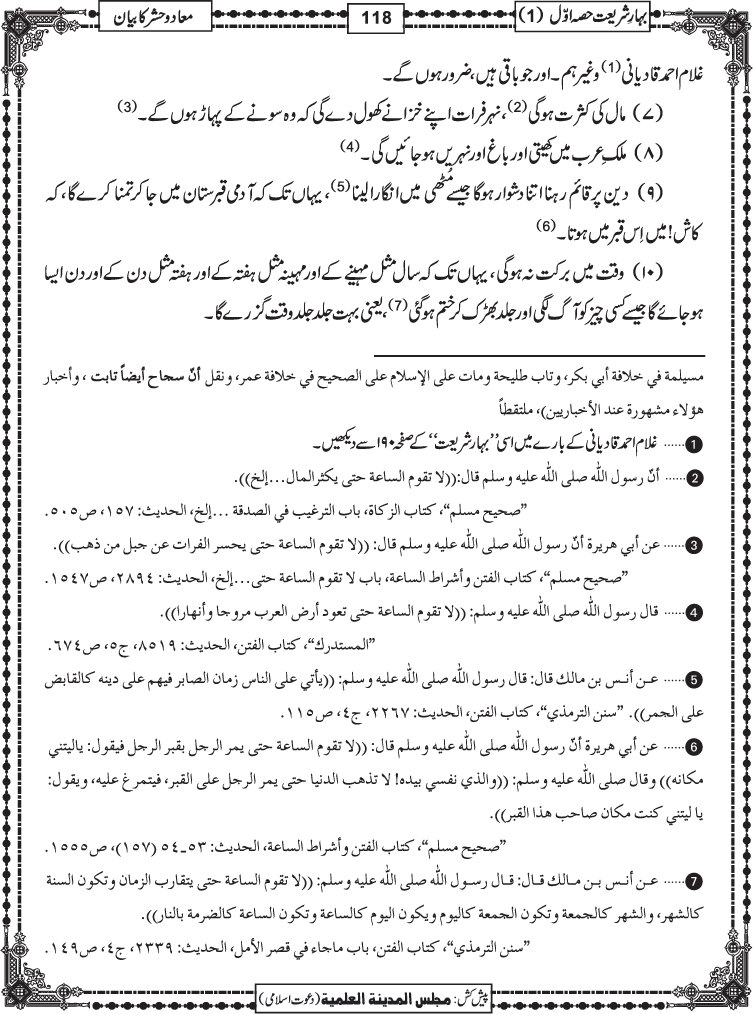 بہارِ شریعت حصہ اوّل (1)
118
معاد و حشر کا بیان
غلام احمد قادیانی (1) وغیرہم۔ اور جو باقی ہیں، ضرور ہوں گے۔
(۷) مال کی کثرت ہوگی (2)، نہر فرات اپنے خزانے کھول دے گی کہ وہ سونے کے پہاڑ ہوں گے۔ (3)
(۸) ملکِ عرب میں کھیتی اور باغ اور نہریں ہوجائیں گی۔ (4)
(۹) دین پر قائم رہنا اتنا دشوار ہوگا جیسے مُٹھی میں انگارا لینا (5)، یہاں تک کہ آدمی قبرستان میں جا کر تمنا کرے گا، کہ
کاش! میں اِس قبر میں ہوتا۔ (6)
(۱۰) وقت میں برکت نہ ہوگی، یہاں تک کہ سال مثل مہینے کے اور مہینہ مثل ہفتہ کے اور ہفتہ مثل دن کے اور دن ایسا
ہوجائے گا جیسے کسی چیز کو آگ لگی اور جلد بھڑک کر ختم ہوگئی (7)، یعنی بہت جلد جلد وقت گزرے گا۔
مسيلمة في خلافة أبي بكر، وتاب طليحة ومات على الإسلام على الصحيح في خلافة عمر، ونقل أنّ سجاح أيضاً تابت ، وأخبار
هؤلاء مشهورة عند الأخباريين)، ملتقطاً
1 ...... غلام احمد قادیانی کے بارے میں اسی ’’بہار شریعت‘‘ کے صفحہ ۱۹۰ سے دیکھیں۔
2 ...... أنّ رسول الله صلى الله عليه وسلم قال: ((لا تقوم الساعة حتى يكثر المال...إلخ)).
”صحيح مسلم“، كتاب الزكاة، باب الترغيب في الصدقة ...إلخ، الحديث: ١٥٧، ص٥٠٥.
3 ...... عن أبي هريرة أنّ رسول الله صلى الله عليه وسلم قال: ((لا تقوم الساعة حتى يحسر الفرات عن جبل من ذهب)).
”صحيح مسلم“، كتاب الفتن وأشراط الساعة، باب لا تقوم الساعة حتى...إلخ، الحديث: ٢٨٩٤، ص١٥٤٧.
4 ...... قال رسول الله صلى الله عليه وسلم: ((لا تقوم الساعة حتى تعود أرض العرب مروجا وأنهارا)).
”المستدرك“، كتاب الفتن، الحديث: ٨٥١٩، ج٥، ص٦٧٤.
5 ...... عـن أنـس بن مالك قال: قال رسول الله صلى الله عليه وسلم: ((يأتي على الناس زمان الصابر فيهم على دينه كالقابض
على الجمر)). ”سنن الترمذي“، كتاب الفتن، الحديث: ٢٢٦٧، ج٤، ص١١٥.
6 ...... عن أبي هريرة أنّ رسول الله صلى الله عليه وسلم قال: ((لا تقوم الساعة حتى يمر الرجل بقبر الرجل فيقول: ياليتني
مكانه)) وقال صلى الله عليه وسلم: ((والذي نفسي بيده! لا تذهب الدنيا حتى يمر الرجل على القبر، فيتمرغ عليه، ويقول:
يا ليتني كنت مكان صاحب هذا القبر)).
”صحيح مسلم“، كتاب الفتن وأشراط الساعة، الحديث: ٥٣ـ٥٤ (١٥٧)، ص١٥٥٥.
7 ...... عـن أنـس بـن مـالك قـال: قـال رسـول الله صلى الله عليه وسلم: ((لا تقوم الساعة حتى يتقارب الزمان وتكون السنة
كالشهر، والشهر كالجمعة وتكون الجمعة كاليوم ويكون اليوم كالساعة وتكون الساعة كالضرمة بالنار)).
”سنن الترمذي“، كتاب الفتن، باب ماجاء في قصر الأمل، الحديث: ٢٣٣٩، ج٤، ص١٤٩.
پیش کش: مجلس المدينة العلمية (دعوت اسلامی)